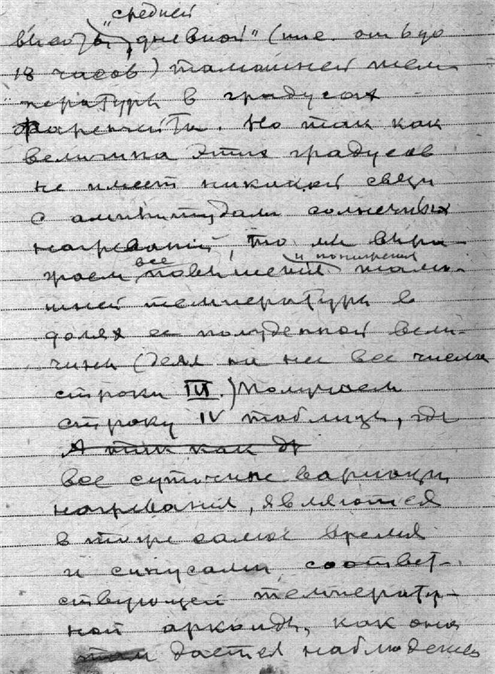 средней
высоты „дневной" (т.е. от 6 до
18 часов) тамошней тем-
пературы в градусах
Фаренгейта. Но так как
величина этих градусов
не имеет никакой связи
с амплитудами солнечных
нагреваний, то мы выра-
все и понижения
жаем повышения тамо-
шней температуры в
долях ее полуденной вели-
чины (деля на нее все числа
строки III.) Получаем
строку IV таблицы, где
А так как
все суточные вариации
нагревания, являются
в тоже самое время
и синусами соответ-
ствующей температур-
ной аркоиды, как она
дается наблюдению